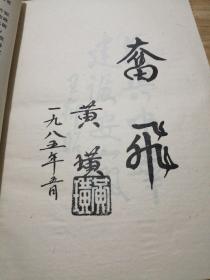 奮飛
黄璜
一九八五年五月